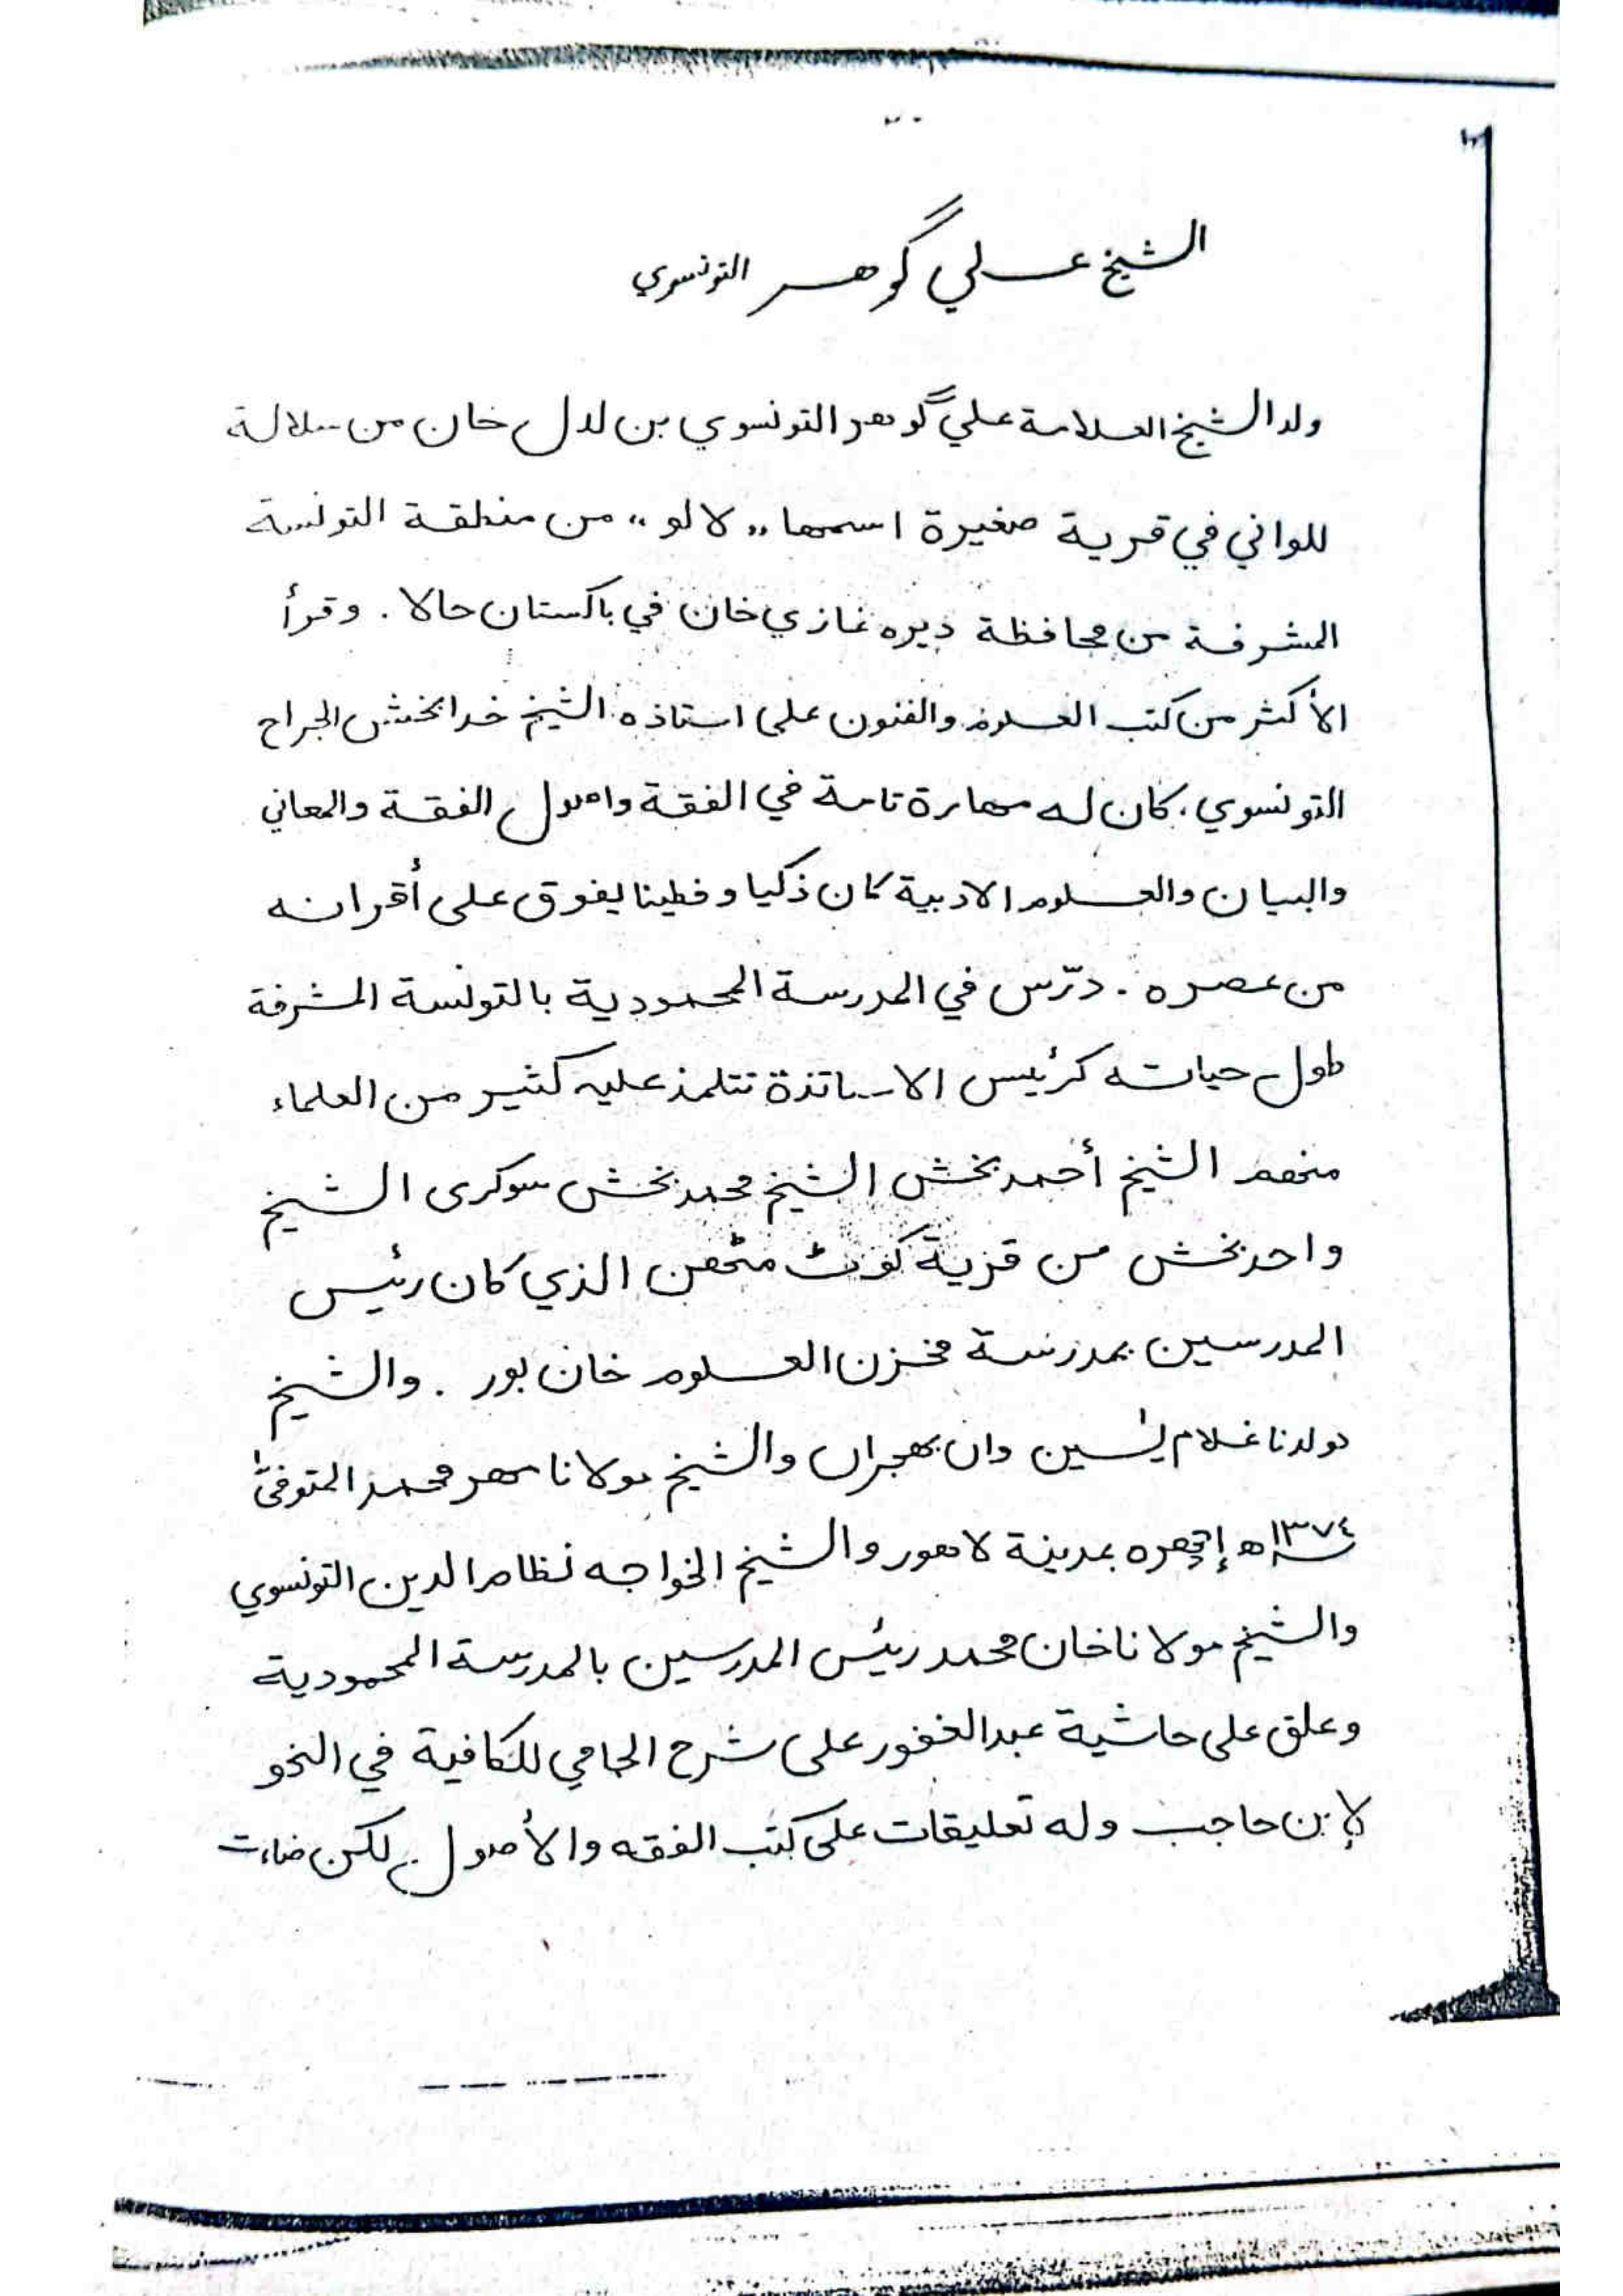 الشيخ علي گوهر التونسوي
ولد الشيخ العلامة علي گوهر التونسوي بن لدل خان من سلالة
للواني في قرية صغيرة اسمها „لالو“ من منطقة التونسة
المشرفة من محافظة ديره غازي خان في باكستان حالا . وقرأ
الأكثر من كتب العلوم والفنون على استاذه الشيخ خدا بخش الجراح
التونسوي، كان له مهارة تامة في الفقة واصول الفقة والمعاني
والبيان والعلوم الادبية كان ذكيا وفطينا يفوق على أقرانه
من عصره . درّس في المدرسة المحمودية بالتونسة المشرفة
طول حياته كرئيس الاساتذة تتلمذ عليه كثير من العلماء
منهم الشيخ أحمد بخش الشيخ محمد بخش سوكرى الشيخ
واحد بخش من قرية كوٹ مٹهن الذي كان رئيس
المدرسين بمدرسة مخزن العلوم خان بور . والشيخ
مولانا غلام يٰسين وان بهچراں والشيخ مولانا مهر محمد المتوفىٰ
١٣٧٤ھ إچهره بمدينة لاهور والشيخ الخواجه نظام الدين التونسوي
والشيخ مولانا خان محمد رئيس المدرسين بالمدرسة المحمودية
وعلق على حاشية عبد الغفور على شرح الجامي للكافية في النحو
لإبن حاجب وله تعليقات على كتب الفقه والأصول لكن ضاءت